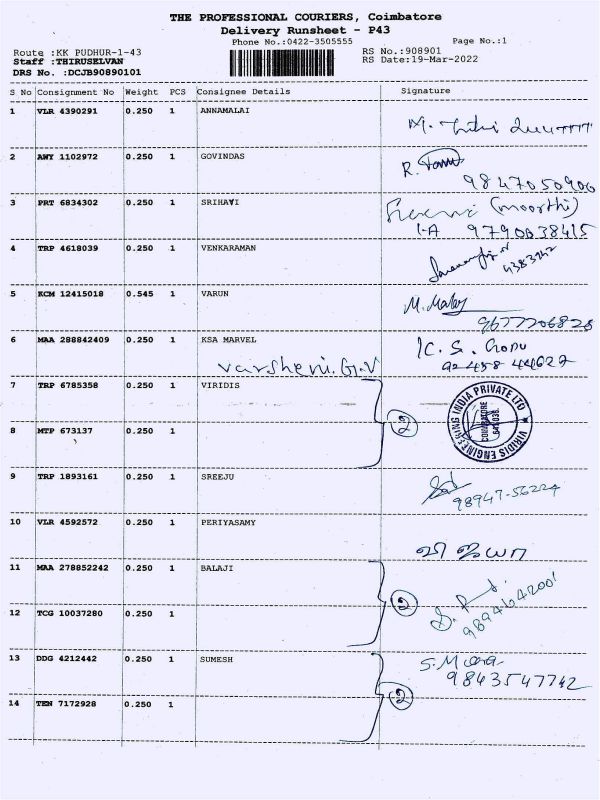 THE PROFESSIONAL COURIERS, Coimbatore
Delivery Runsheet - P43
Phone No.:0422-3505555
Page No.:1
Route :KK PUDHUR-1-43
RS No.:908901
Staff :THIRUSELVAN
RS Date:19-Mar-2022
DRS No. :DCJB90890101
S No Consignment No Weight PCS Consignee Details Signature
1 VLR 4390291 0.250 1 ANNAMALAI
2 AWY 1102972 0.250 1 GOVINDAS
9847050906
3 PRT 6834302 0.250 1 SRIHAVI
(moorthi)
9790038415
4 TRP 4618039 0.250 1 VENKARAMAN
5 KCM 12415018 0.545 1 VARUN
9677206828
6 MAA 288842409 0.250 1 KSA MARVEL
Varsheni.G.V
7 TRP 6785358 0.250 1 VIRIDIS
2
VIRIDIS ENGINEERING INDIA PRIVATE LTD
COIMBATORE
8 MTP 673137 0.250 1
9 TRP 1893161 0.250 1 SREEJU
98947-56224
10 VLR 4592572 0.250 1 PERIYASAMY
11 MAA 278852242 0.250 1 BALAJI
2
9894642001
12 TCG 10037280 0.250 1
13 DDG 4212442 0.250 1 SUMESH
9843547742
2
14 TEN 7172928 0.250 1